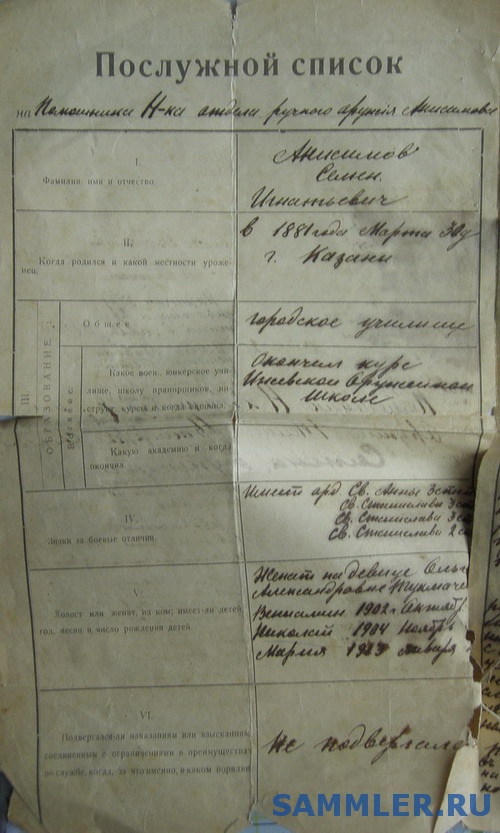 Послужной список
на Помошника Н-ка отдела ручного оружiя Анисимова
I.
Фамилия, имя и отчество.
Анисимов
Семен
Игнатьевич
II.
Когда родился и какой местности уроже-
нец.
в 1881 года Марта 30 д
г. Казани
III.
ОБРАЗОВАНИЕ:
Общее
городское училище
Военное
Какое воен., юнкерское учи-
лище, школу прапорщиков, ин-
структ. курсы и когда окончил.
Окончил курс
Ижевской Оружейной
Школе
Какую академию и когда
окончил.
IV.
Знаки за боевые отличия.
Имеет орд Св. Анны 3 степ
Св. Станислава 3 ст
Св. Станислава 3 ст
Св. Станислава 2 ст
V.
Холост или женат, на ком; имеет-ли детей,
год, месяц и число рождения детей.
Женат на девице Ольг
Александровне
Вениамин 1902 г. Октябр
Николай 1904 Ноябрь
Мария 1913 января
VI.
Подвергался-ли наказаниям или взысканиям,
соединенным с ограничениями в преимуществах
по службе, когда, за что именно, и каком порядке
Не подвергался
SAMMLER.RU